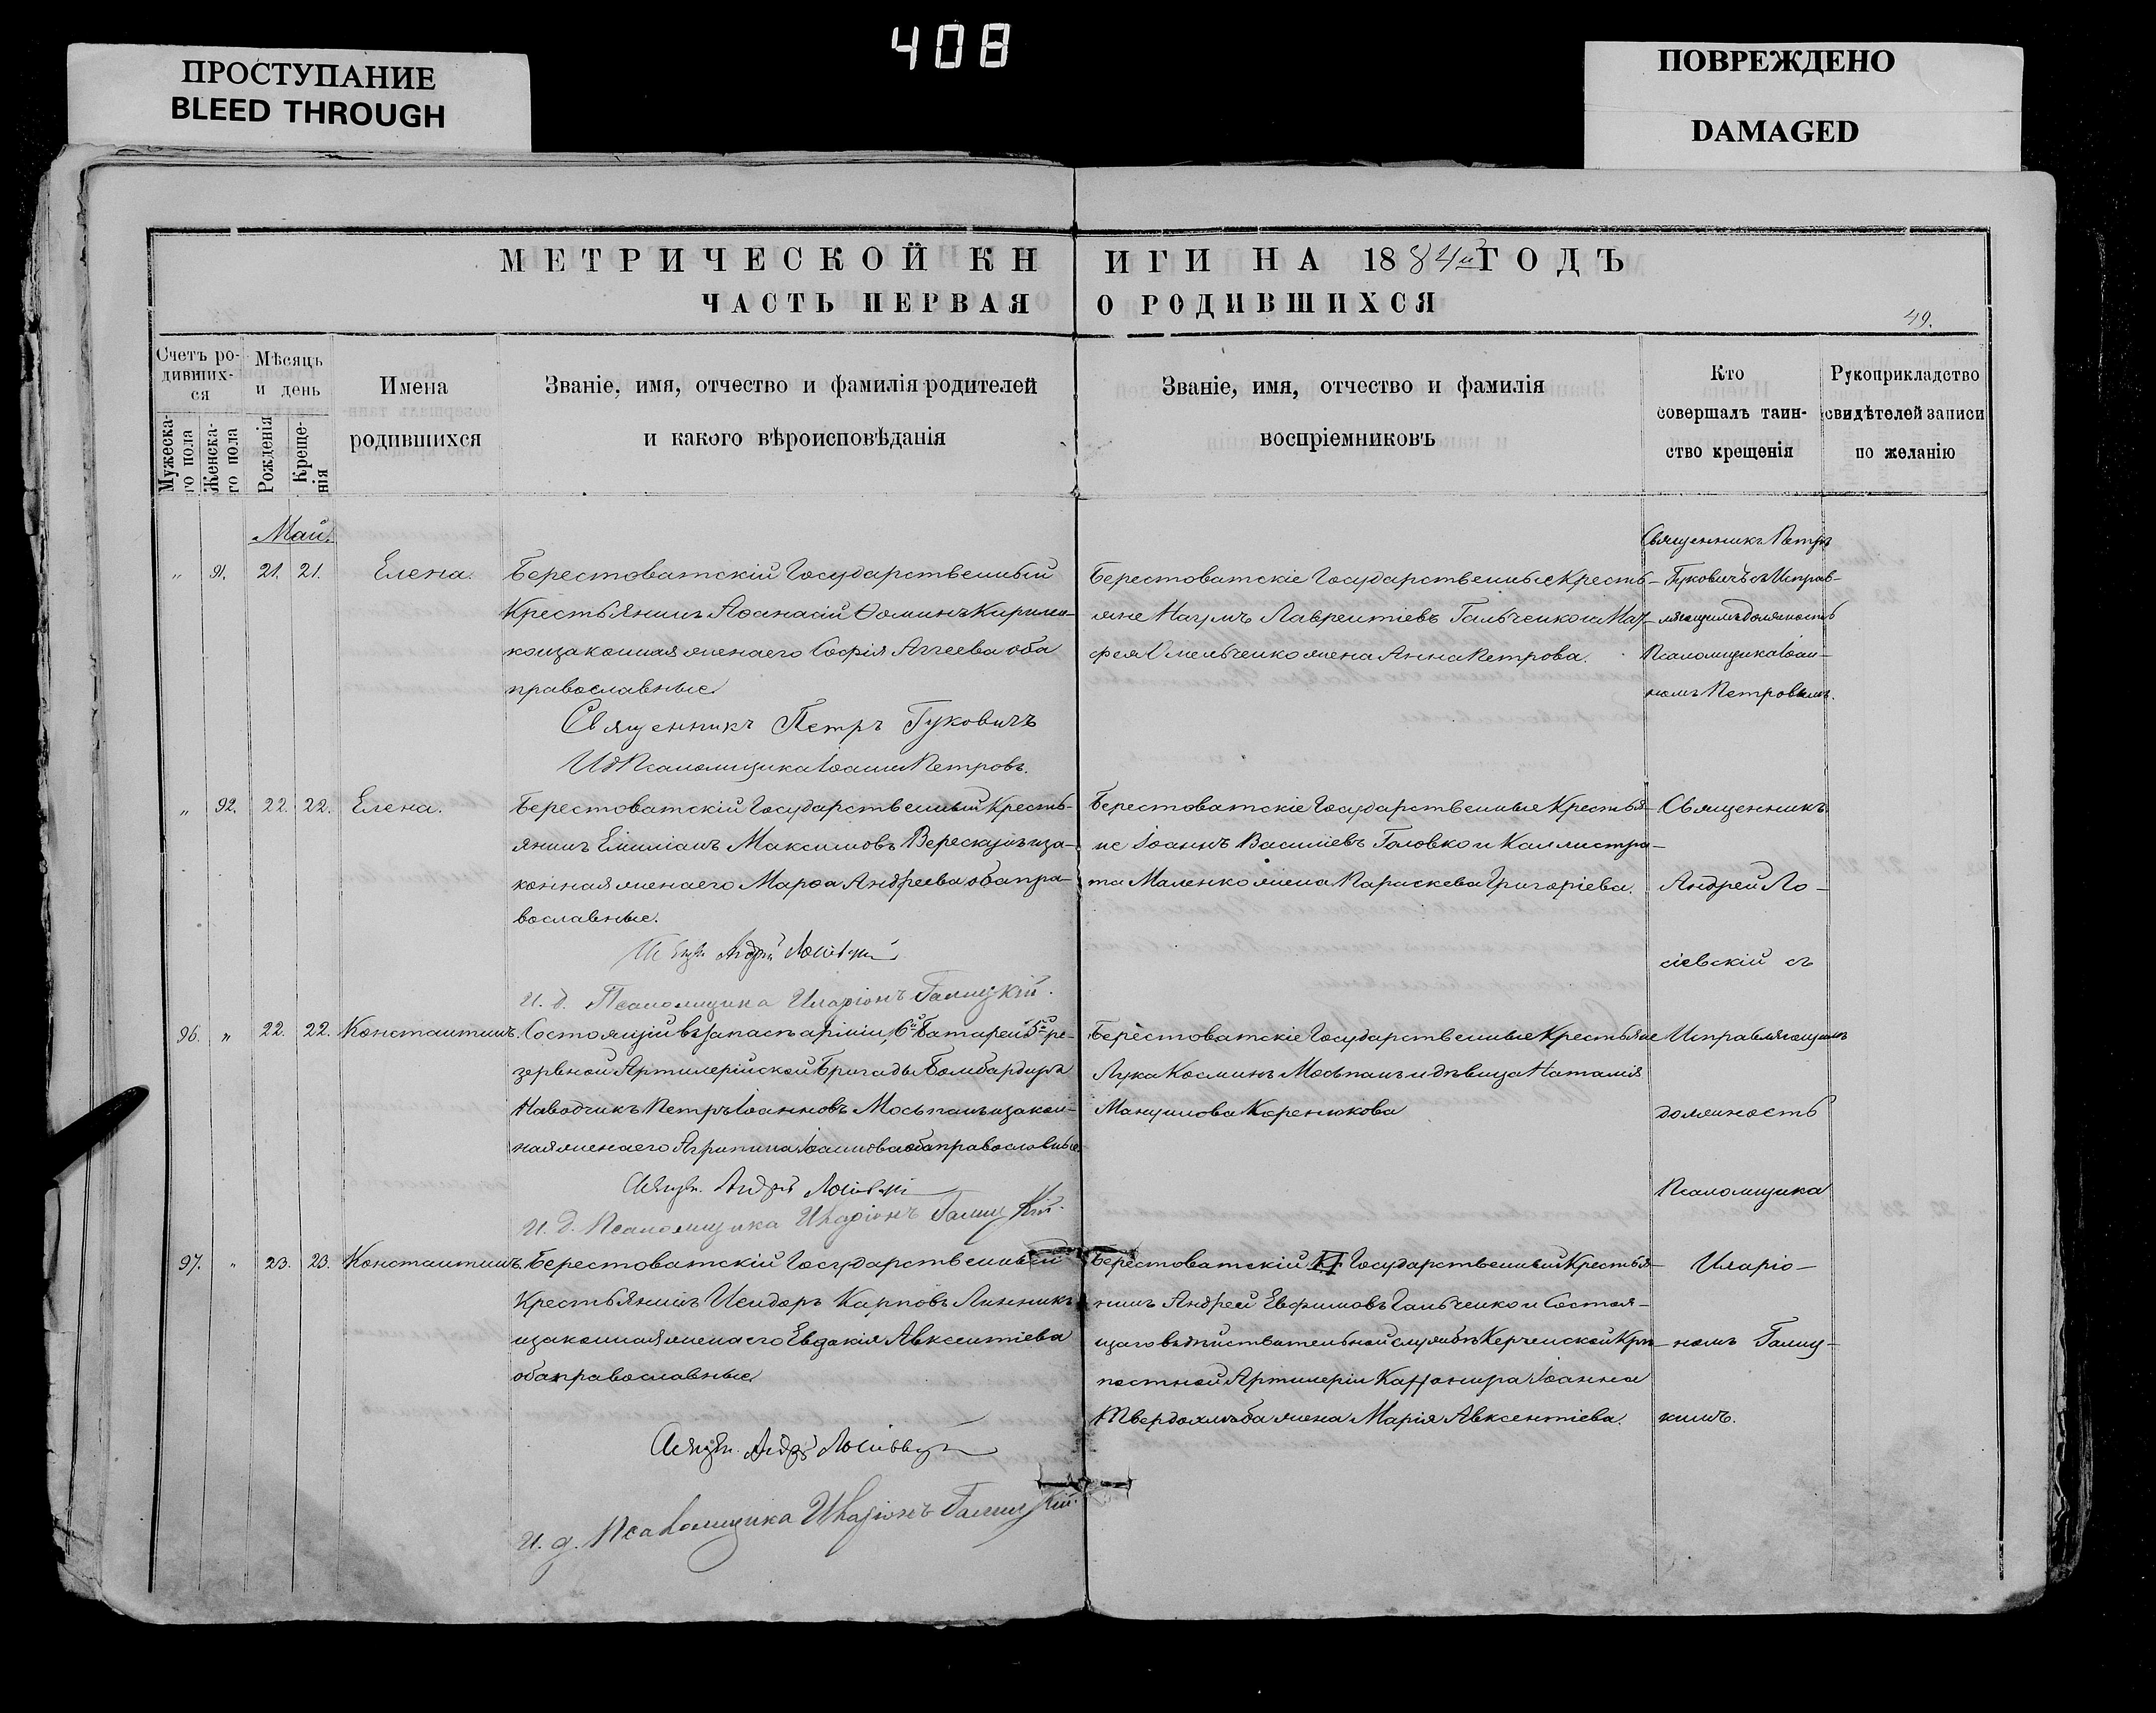 408
ПРОСТУПАНИЕ
BLEED THROUGH
ПОВРЕЖДЕНО
DAMAGED
МЕТРИЧЕСКОЙ КНИГИ НА 1884й ГОДЪ
ЧАСТЬ ПЕРВАЯ О РОДИВШИХСЯ
49.
Счетъ ро-
дивших-
ся
Мужеска-
го пола
Женска-
го пола
Мѣсяцъ
и день
Рожденія
Креще-
нія
Имена
родившихся
Званіе, имя, отчество и фамилія родителей
и какого вѣроисповѣданія
Званіе, имя, отчество и фамилія
воспріемниковъ
Кто
совершалъ таин-
ство крещенія
Рукоприкладство
свидѣтелей записи
по желанію
Май.
„ 91. 21. 21. Елена.
Берестоватскій Государственный
Крестьянинъ Аѳанасій Ѳоминъ Кирилен-
ко и законная жена его Софія Аггеева оба
православные.
Священникъ Петръ Гуковичъ
И д Псаломщика Іоаннъ Петровъ.
Берестоватскіе Государственные Кресть-
яне Наумъ Лаврентіевъ Гальченко и Мат-
фея Омельченко жена Анна Петрова.
Священникъ Петръ
Гуковичъ съ Исправ-
ляющимъ должность
Псаломщика Іоан-
номъ Петровымъ.
„ 92. 22. 22. Елена.
Берестоватскій Государственный Кресть-
янинъ Емиліанъ Максимовъ Верескунъ и за-
конная жена его Марѳа Андреева оба пра-
вославные.
Андрей Лосіевскій
И. д. Псаломщика Иларіонъ Галицкій.
Берестоватскіе Государственные Крестья-
не Іоаннъ Василіевъ Головко и Каллистра-
та Маленко жена Параскева Григоріева.
Священникъ
Андрей Ло-
сіевскій съ
96. „ 22. 22. Константинъ.
Состоящій въ запасѣ арміи, 6й Батареи 5й ре-
зервной Артилерійской Бригады Бомбардиръ
Наводчикъ Петръ Іоанновъ Мосьпанъ и закон-
ная жена его Агрипина Іоаннова оба православные.
Священ. Андрей Лосіевскій
И. д. Псаломщика Иларіонъ Галицкій.
Берестоватскіе Государственные Крестьяне
Лука Косминъ Мосьпанъ и дѣвица Наталія
Мануилова Коренюкова
Исправляющимъ
должность
Псаломщика
97. „ 23. 23. Константинъ.
Берестоватскій Государственный
Крестьянинъ Исидоръ Карповъ Линникъ
и законная жена его Евдокія Авксентіева
оба православные
Священ. Андрей Лосіевскій
И. д. Псаломщика Иларіонъ Галицкій.
Берестоватскій Государственный Крестья-
нинъ Андрей Евфимовъ Гальченко и Состоя-
щаго въ дѣйствительной службѣ Керченской Крѣ-
постной Артилеріи Каѳонира Іоанна
Твердохлѣба жена Марія Авксентіева.
Иларіо-
номъ Галиц-
кимъ.